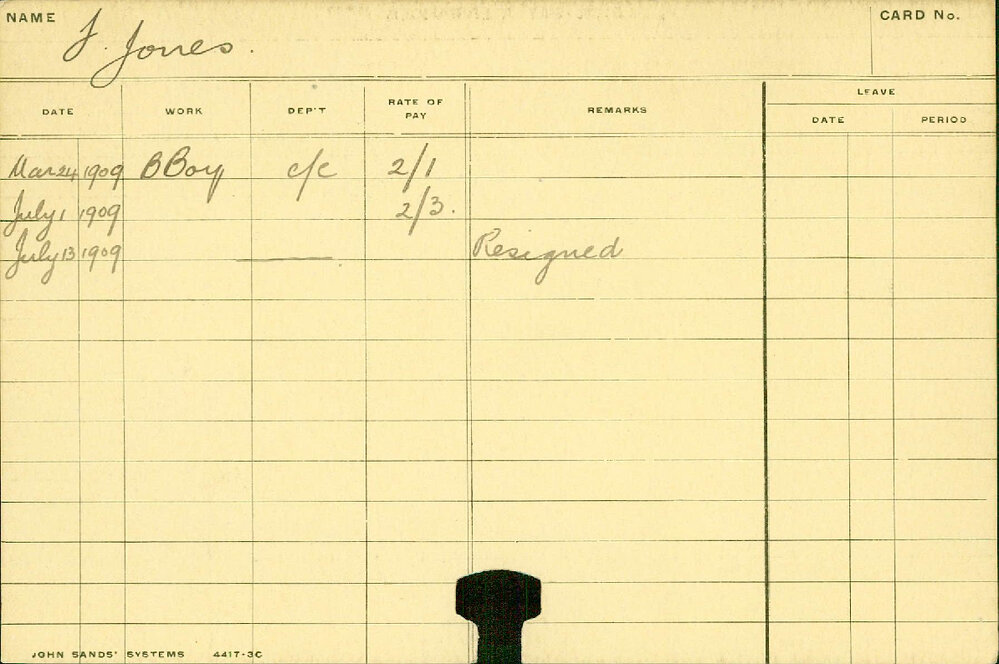 NAME J. Jones. CARD No.
LEAVE
DATE WORK DEP'T RATE OF PAY REMARKS DATE PERIOD
Mar 24 1909 B Boy c/c 2/1
July 1 1909 2/3.
July 13 1909 Resigned
JOHN SANDS' SYSTEMS 4417-3C